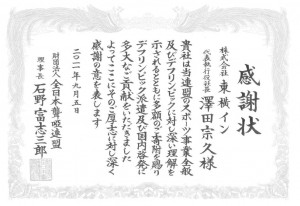 感謝状
株式会社 東横イン
代表執行役社長 澤田宗久様
貴社は当連盟のスポーツ事業全般
及びデフリンピックに対し深い理解を
示されるとともに多額のご寄附を賜り
デフリンピック派遣及び国内啓発に
多大なご貢献をいただきました
よってここにそのご厚志に対し深く
感謝の意を表します
二〇一一年九月五日
財団法人 全日本聾唖連盟
理事長 石野富志三郎